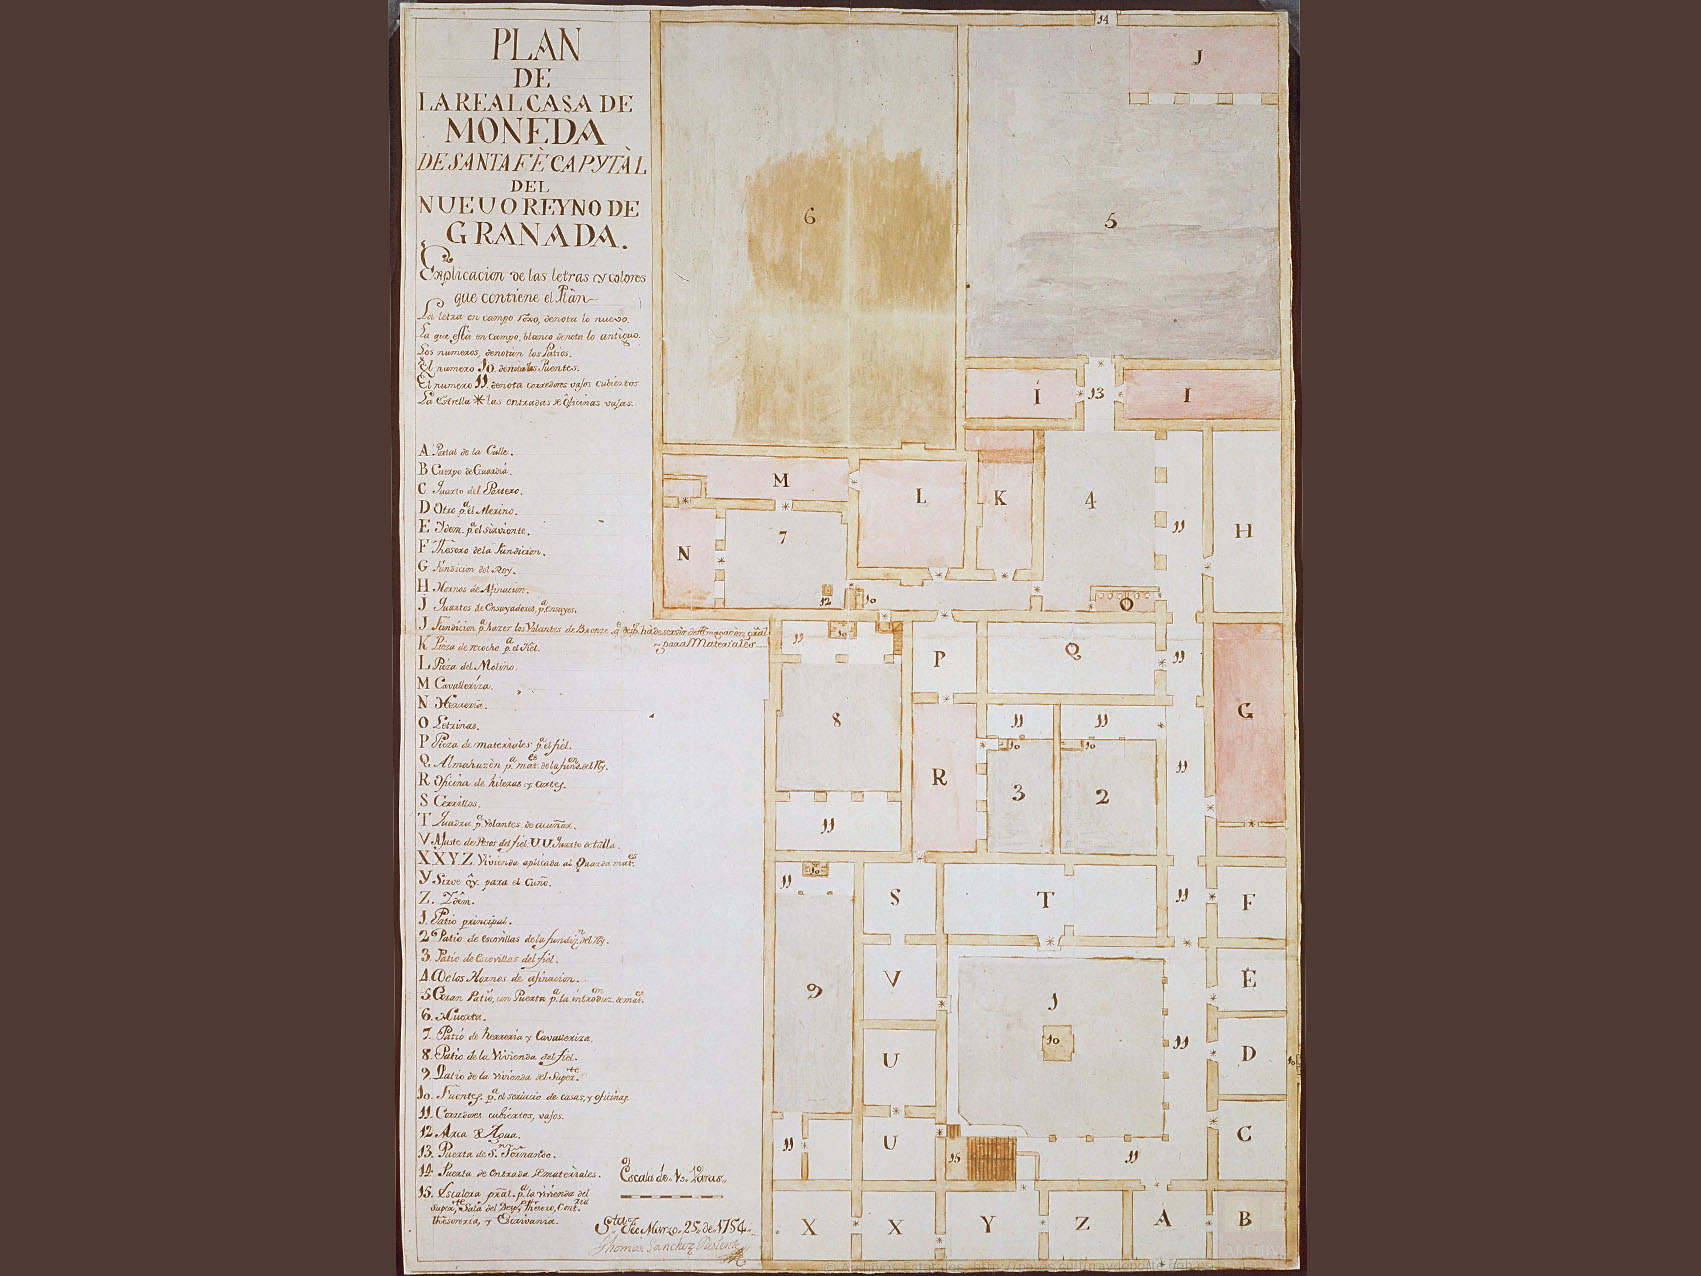 PLAN
DE
LA REAL CASA DE
MONEDA
DE SANTA FÈ CAPYTÀL
DEL
NUEUO REYNO DE
GRANADA.
Explicacion de las letras y colores
que contiene el Plan
La letra en campo roxo, denota lo nuevo.
La que està en campo blanco denota lo antiguo.
Los numeros, denotan los Patios.
El numero 10. denota las Fuentes.
El numero 11. denota corredores vajos cubiertos
La Estrella * las entradas de Oficinas vajas.
A Portal de la Calle.
B Cuerpo de Guardia.
C Quarto del Portero.
D Otro pa. el Merino.
E Ydem. pa. el sirviente.
F Thesoro de la Fundicion.
G Fundicion del Rey.
H Hornos de Afinacion.
J Quartos de Ensayadores, pa. ensayes.
J Fundicion pa. hazer los Volantes de Bronze
para Materiales
K Pieza de recocho pa. el fiel.
L Pieza del Molino.
M Cavalleriza.
N Herreria.
O Letrinas.
P Pieza de materiales pa. el fiel.
Q Almahazèn pa. mat.es de la fund.on del Ry.
R Oficina de hileras y cortes.
S Cerrillos.
T Quadra pa. Volantes de acuñar.
V Ajuste de Pesos del fiel. UU Quarto de talla.
XXYZ Vivienda aplicada al Guarda mat.es
Y Sirve oy. para el Cuño.
Z. Ydem.
1. Patio principal.
2 Patio de escovillas de la fundiz.n del Ry.
3. Patio de Escovillas del fiel.
4. De los Hornos de afinacion.
5. Gran Patio, con Puerta pa. la introduz.on de mat.es
6. Huerta.
7. Patio de herreria y Cavalleriza.
8. Patio de la Vivienda del fiel.
9. Patio de la vivienda del Super.te
10. Fuentes. pa. el servicio de casas, y oficinas.
11. Corredores cubiertos, vajos.
12 Arca de Agua.
13. Puerta de Sn. Fernando.
14. Puerta de entrada de materiales.
15. Escalera pral. pa. la vivienda del
Super.te Sala del Desp.o Thesoro, Cont.ria
thesoreria, y Escrivania.
Escala de Varas
Sta. Fee Marzo 25. de 1754
Thomas Sanchez
14
J
6
5
Í
13
I
M
L
K
4
11
H
N
7
12
10
O
11
10
P
Q
11
8
G
11
11
10
10
R
3
2
11
11
10
11
S
T
11
F
9
V
E
1
10
U
11
D
10
11
U
15
11
C
X
X
Y
Z
A
B